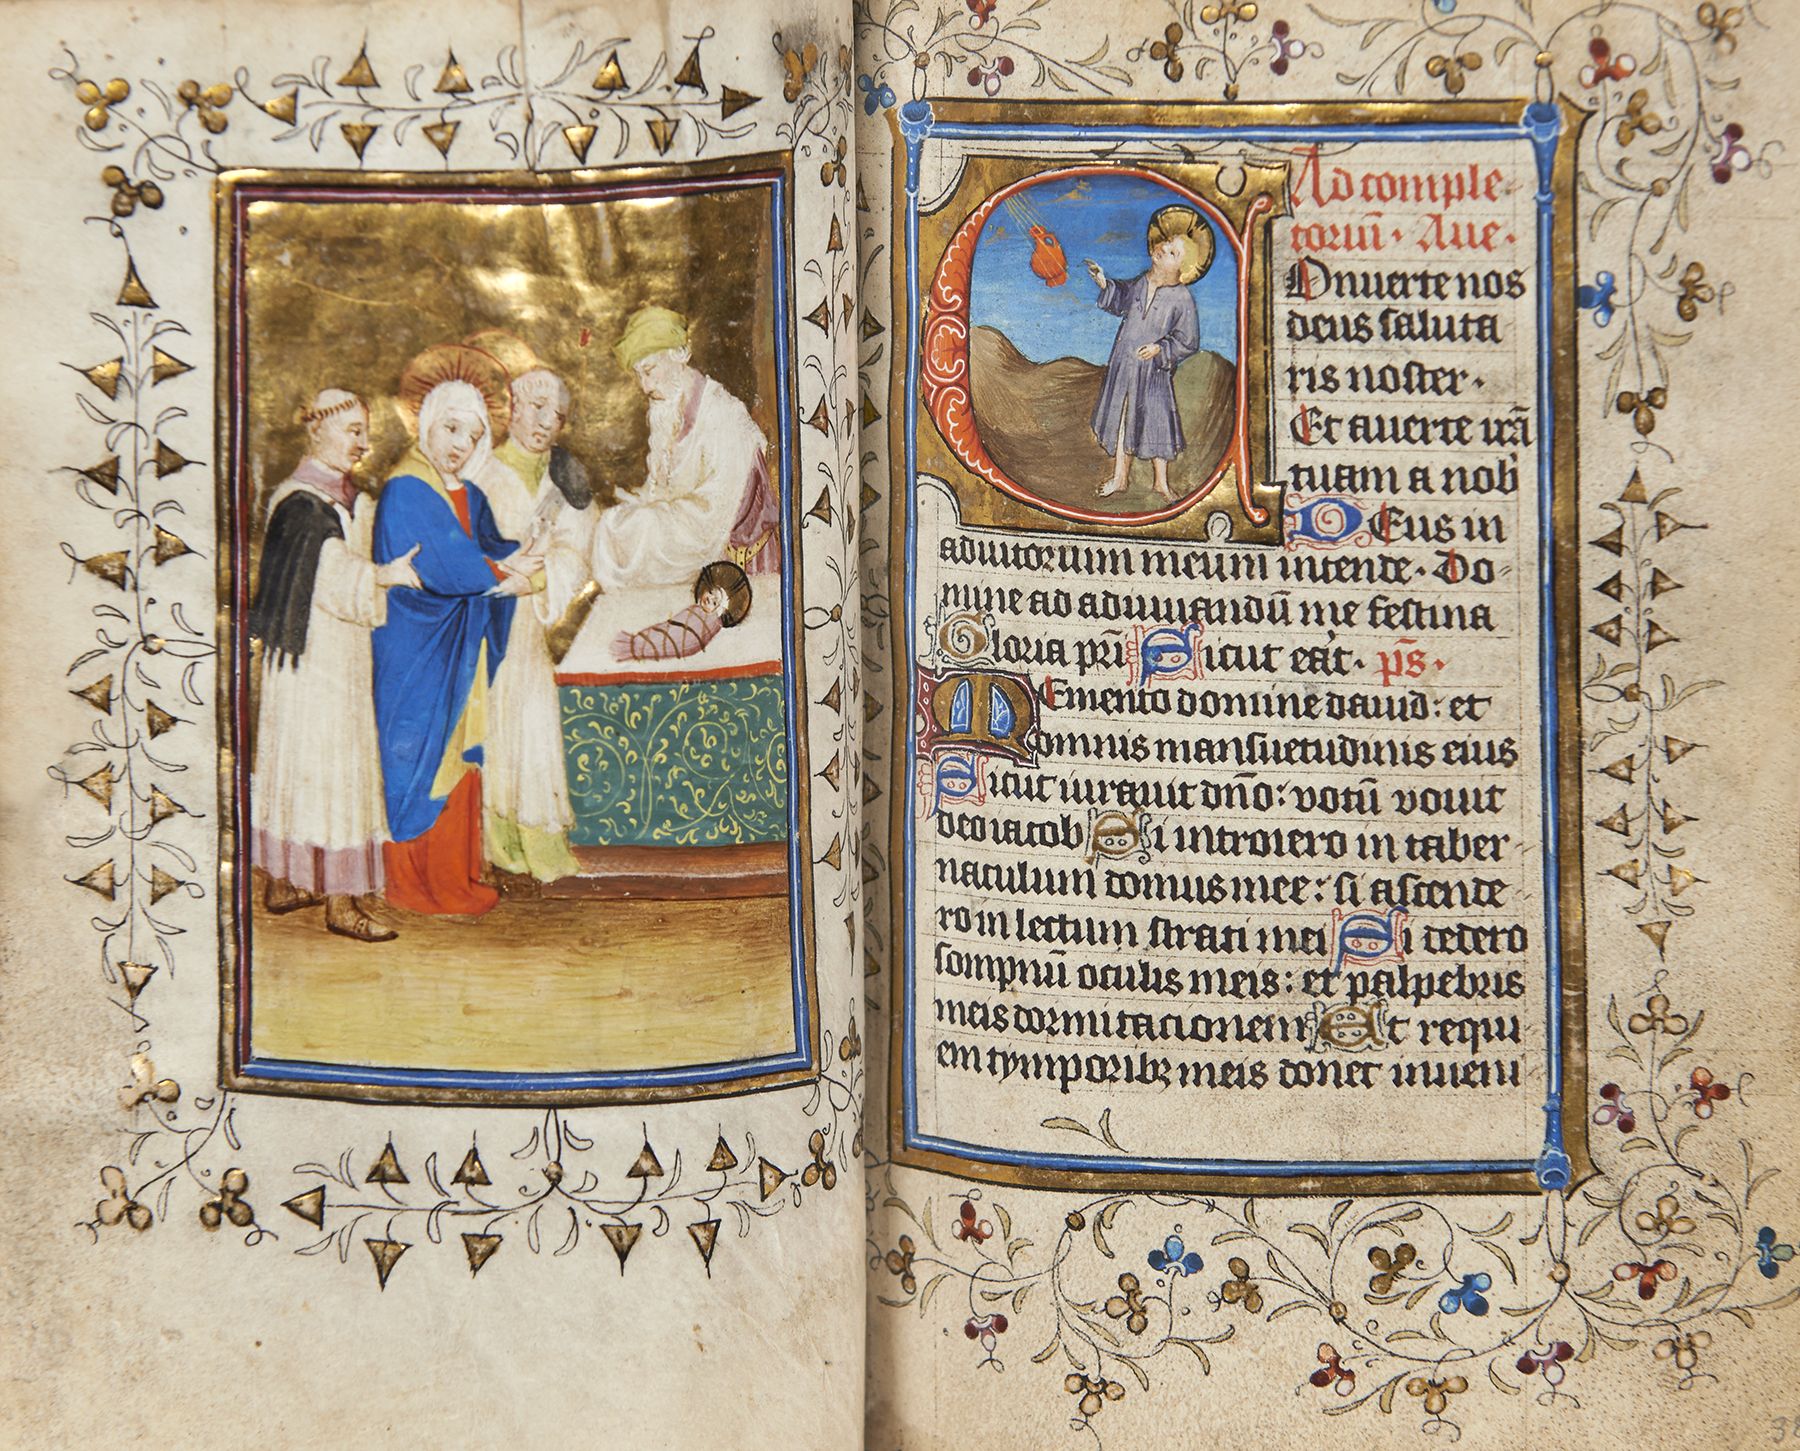 Ad comple-
toriū. Aue.
Onuerte nos
deus saluta
ris noster.
Et auerte irā
tuam a nob
DEus in
adiutorium meum intende. Do-
mine ad adiuuandū me festina
Gloria pri Sicut eat. ps.
MEmento domine dauid: et
omnis mansuetudinis eius
Sicut iurauit dno: votū vouit
deo iacob Si introiero in taber-
naculum domus mee: si ascende-
ro in lectum strati mei Si dedero
sompnū oculis meis: et palpebris
meis dormitacionem Et requi-
em tymporibz meis donec inueni